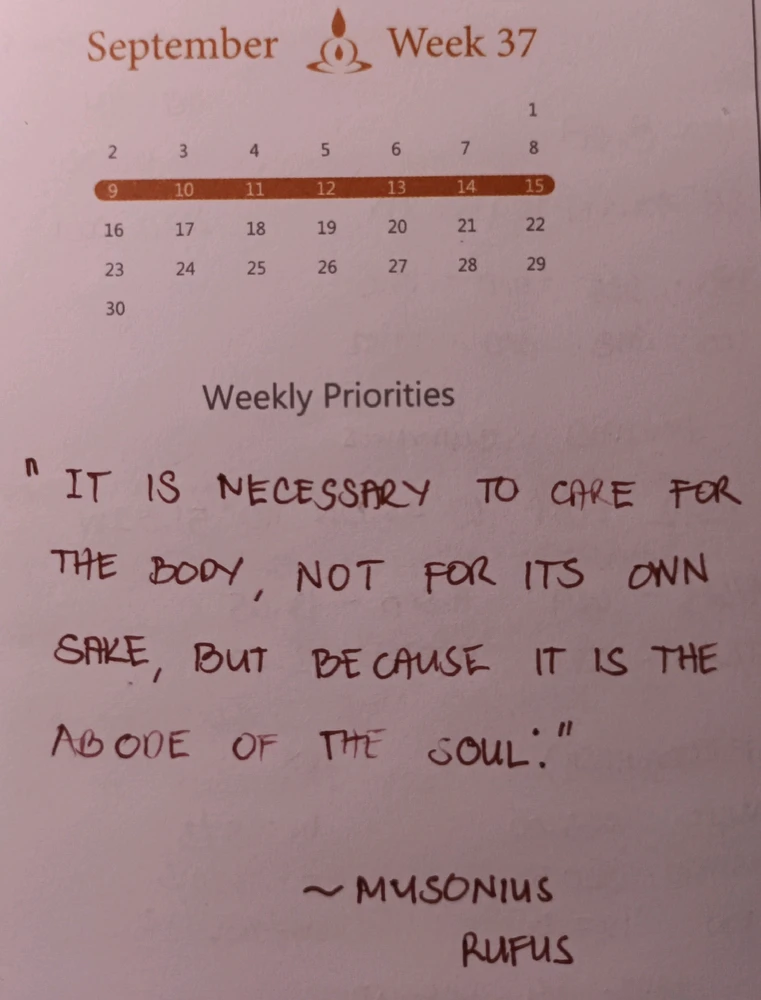 September Week 37
1
2 3 4 5 6 7 8
9 10 11 12 13 14 15
16 17 18 19 20 21 22
23 24 25 26 27 28 29
30
Weekly Priorities
" IT IS NECESSARY TO CARE FOR
THE BODY, NOT FOR ITS OWN
SAKE, BUT BECAUSE IT IS THE
ABODE OF THE SOUL."
~ MUSONIUS
RUFUS